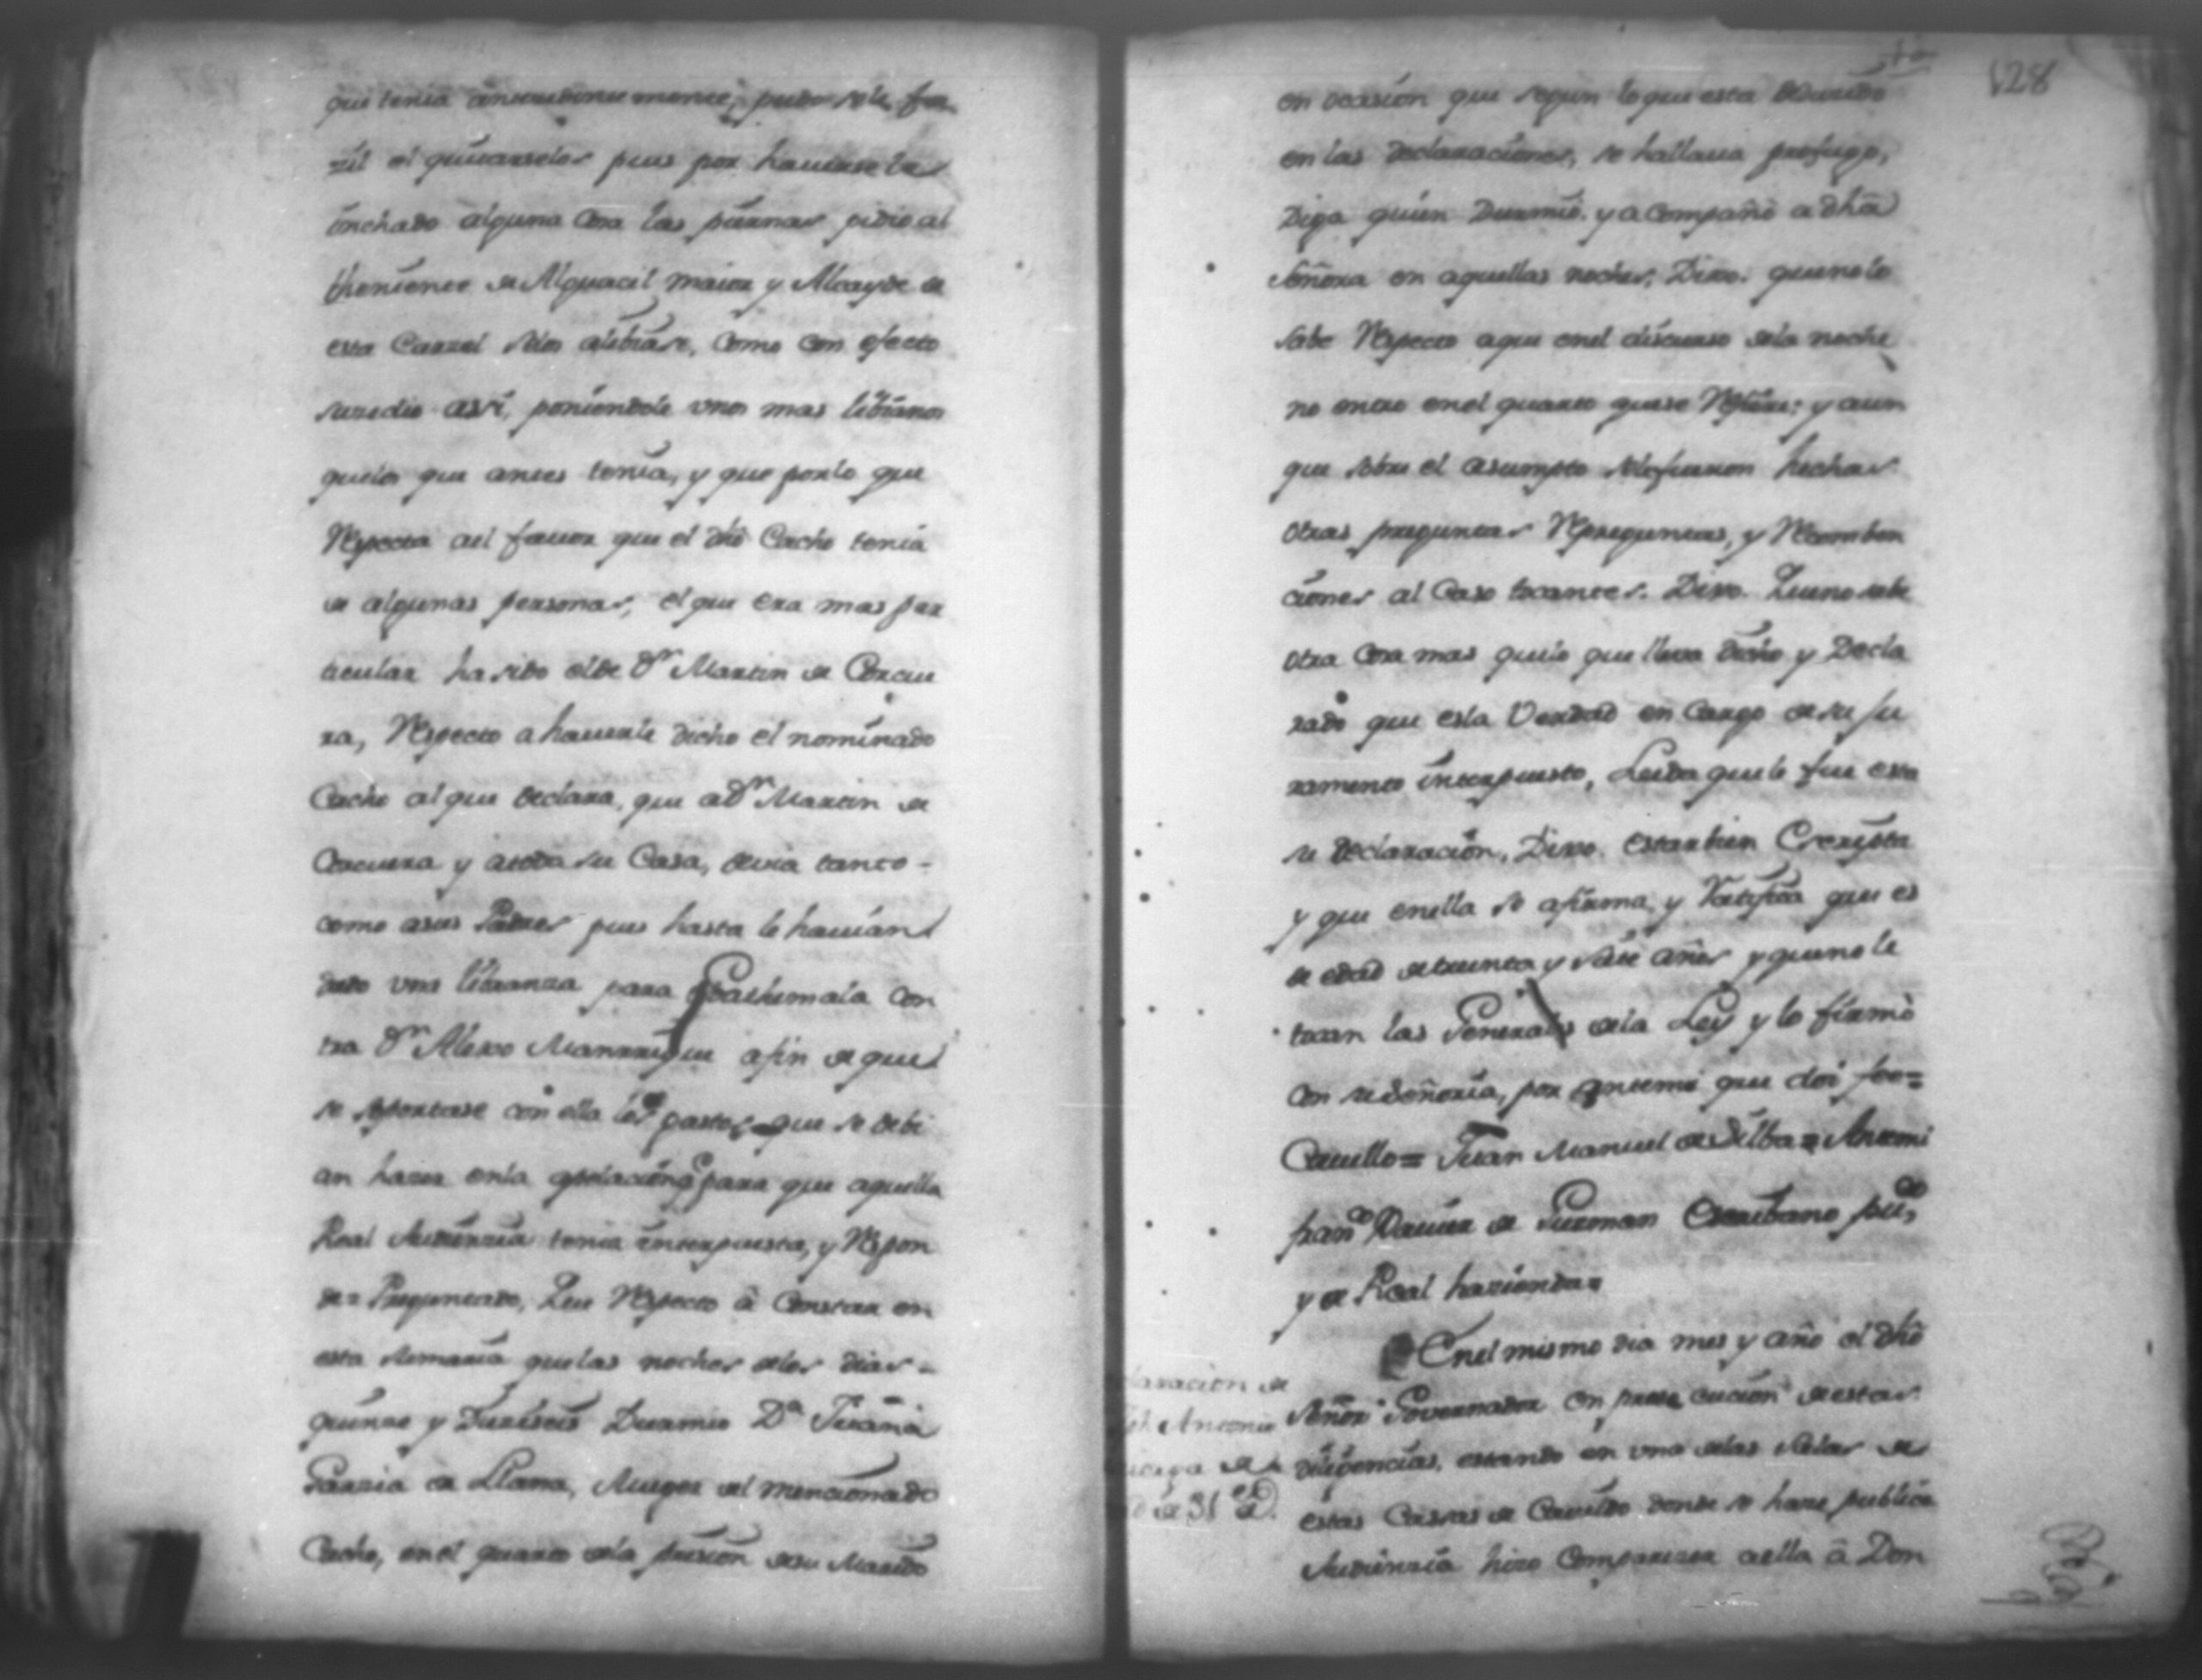 que tenia anteriormente, pudo serle fa
zil el quitarselos pues por haverse le
inchado alguna cosa las piernas pidio al
theniente de Alguacil maior y Alcayde de
esta Carzel selos alibiase, como con efecto
suzedio assi, poniendole unos mas libianos
quelos que antes tenia, y que porlo que
Respecta ael favor que el dho Cacho tenia
de algunas personas, el que era mas par
ticular ha sido elde Dn Martin de Corcue
ra, Respecto a haverle dicho el nominado
Cacho al que declara, que a Dn Martin de
Corcuera y atoda su Casa, devia tanto -
como asus Padres pues hasta le havian
dado una libranza para Goathemala con
tra Dn Alexo Manrrique afin de que
se soportase con ella los gastos que se debi
an hazer enla apelacion que para aquella
Real Audienzia tenia interpuesta, y Respon
de= Preguntado, Que Respecto à Constar en
esta sumaria quelas noches delos dias -
quinze y Diziseis Durmio Da Juana
Garzia de Llama, Muger del mencionado
Cacho, en el quarto dela prision desu Marido
128
en ocasion que segun lo que esta deducido
en las declaraciones, se hallava profugo,
Diga quien Durmio y acompaño a dha
Señora en aquellas noches, Dixo. queno lo
sabe Respecto aque enel discurso dela noche
no entro enel quarto quese Refiere: y aun
que sobre el asumpto sele fueron hechas
otras preguntas Repreguntas, y Recomben
ciones al Caso tocantes. Dixo. Queno sabe
otra cosa mas quelo que lleva dicho y Decla
rado que esla Verdad en Cargo de su Ju
ramento interpuesto, Leida quele fue esta
su declaracion, Dixo. estar bien Escripta
y que enella se afirma y Ratifica que es
de edad de treinta y siete años y queno le
tocan las Generales dela Ley y lo firmò
con su Señoria, por antemi que doi fee=
Cavello= Juan Manuel de Silba= Antemi
franco Xavier de Guzman Escribano puco
y de Real hazienda=
Enel mismo dia mes y año el dho
Señor Governador en prosecucion de estas
diligencias, estando en una delas salas de
estas Cassas de Cavildo donde se haze publica
Audienzia hizo Comparezer aella â Don
laracion de
Antonio
de 31 as